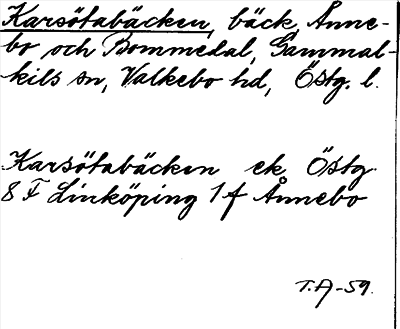 Karsötabäcken, bäck, Ånne-
bo och Bommedal, Gammal-
kils sn, Valkebo hd, Östg. l.
Karsötabäcken ek Östg.
8 F Linköping 1 f Ånnebo
T.A-59.